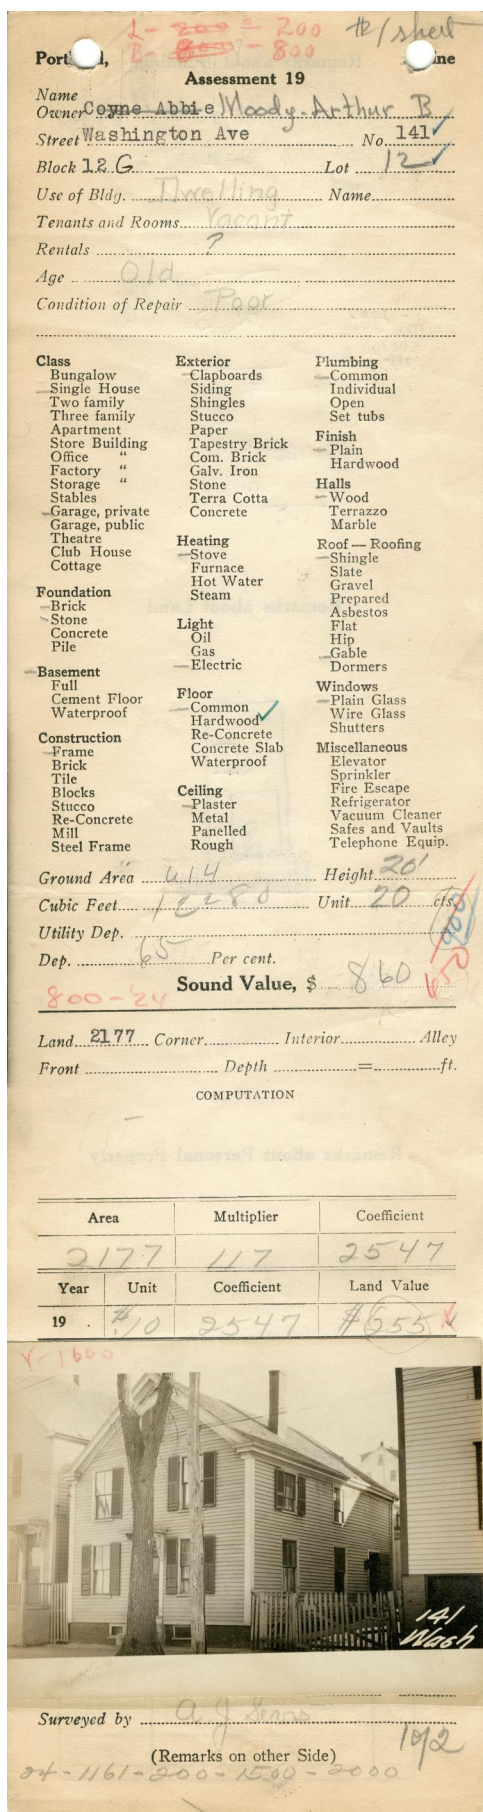 L - 200 - 200 #1 sheet
B - 800 - 800
Portland, Maine
Assessment 19
Name
Owner Coyne Abbie Moody. Arthur B
Street Washington Ave No. 141 ✓
Block 12 G Lot 12 ✓
Use of Bldg. Dwelling Name
Tenants and Rooms Vacant
Rentals ?
Age Old
Condition of Repair Poor
Class
Bungalow
Single House
Two family
Three family
Apartment
Store Building
Office "
Factory "
Storage "
Stables
Garage, private
Garage, public
Theatre
Club House
Cottage
Foundation
Brick
Stone
Concrete
Pile
Basement
Full
Cement Floor
Waterproof
Construction
Frame
Brick
Tile
Blocks
Stucco
Re-Concrete
Mill
Steel Frame
Exterior
Clapboards
Siding
Shingles
Stucco
Paper
Tapestry Brick
Com. Brick
Galv. Iron
Stone
Terra Cotta
Concrete
Heating
Stove
Furnace
Hot Water
Steam
Light
Oil
Gas
Electric
Floor
Common
Hardwood ✓
Re-Concrete
Concrete Slab
Waterproof
Ceiling
Plaster
Metal
Panelled
Rough
Plumbing
Common
Individual
Open
Set tubs
Finish
Plain
Hardwood
Halls
Wood
Terrazzo
Marble
Roof — Roofing
Shingle
Slate
Gravel
Prepared
Asbestos
Flat
Hip
Gable
Dormers
Windows
Plain Glass
Wire Glass
Shutters
Miscellaneous
Elevator
Sprinkler
Fire Escape
Refrigerator
Vacuum Cleaner
Safes and Vaults
Telephone Equip.
Ground Area 614 Height 20'
Cubic Feet 12280 Unit 20 cts.
Utility Dep.
Dep. 65 Per cent.
Sound Value, $ 860
800 - '24
Land 2177 Corner Interior Alley
Front Depth = ft.
COMPUTATION
Area Multiplier Coefficient
2177 117 2547
Year Unit Coefficient Land Value
19 . $.10 2547 $255
V-1600
141
Wash
Surveyed by
(Remarks on other Side)
10/2
24-1161-200-1500-2000